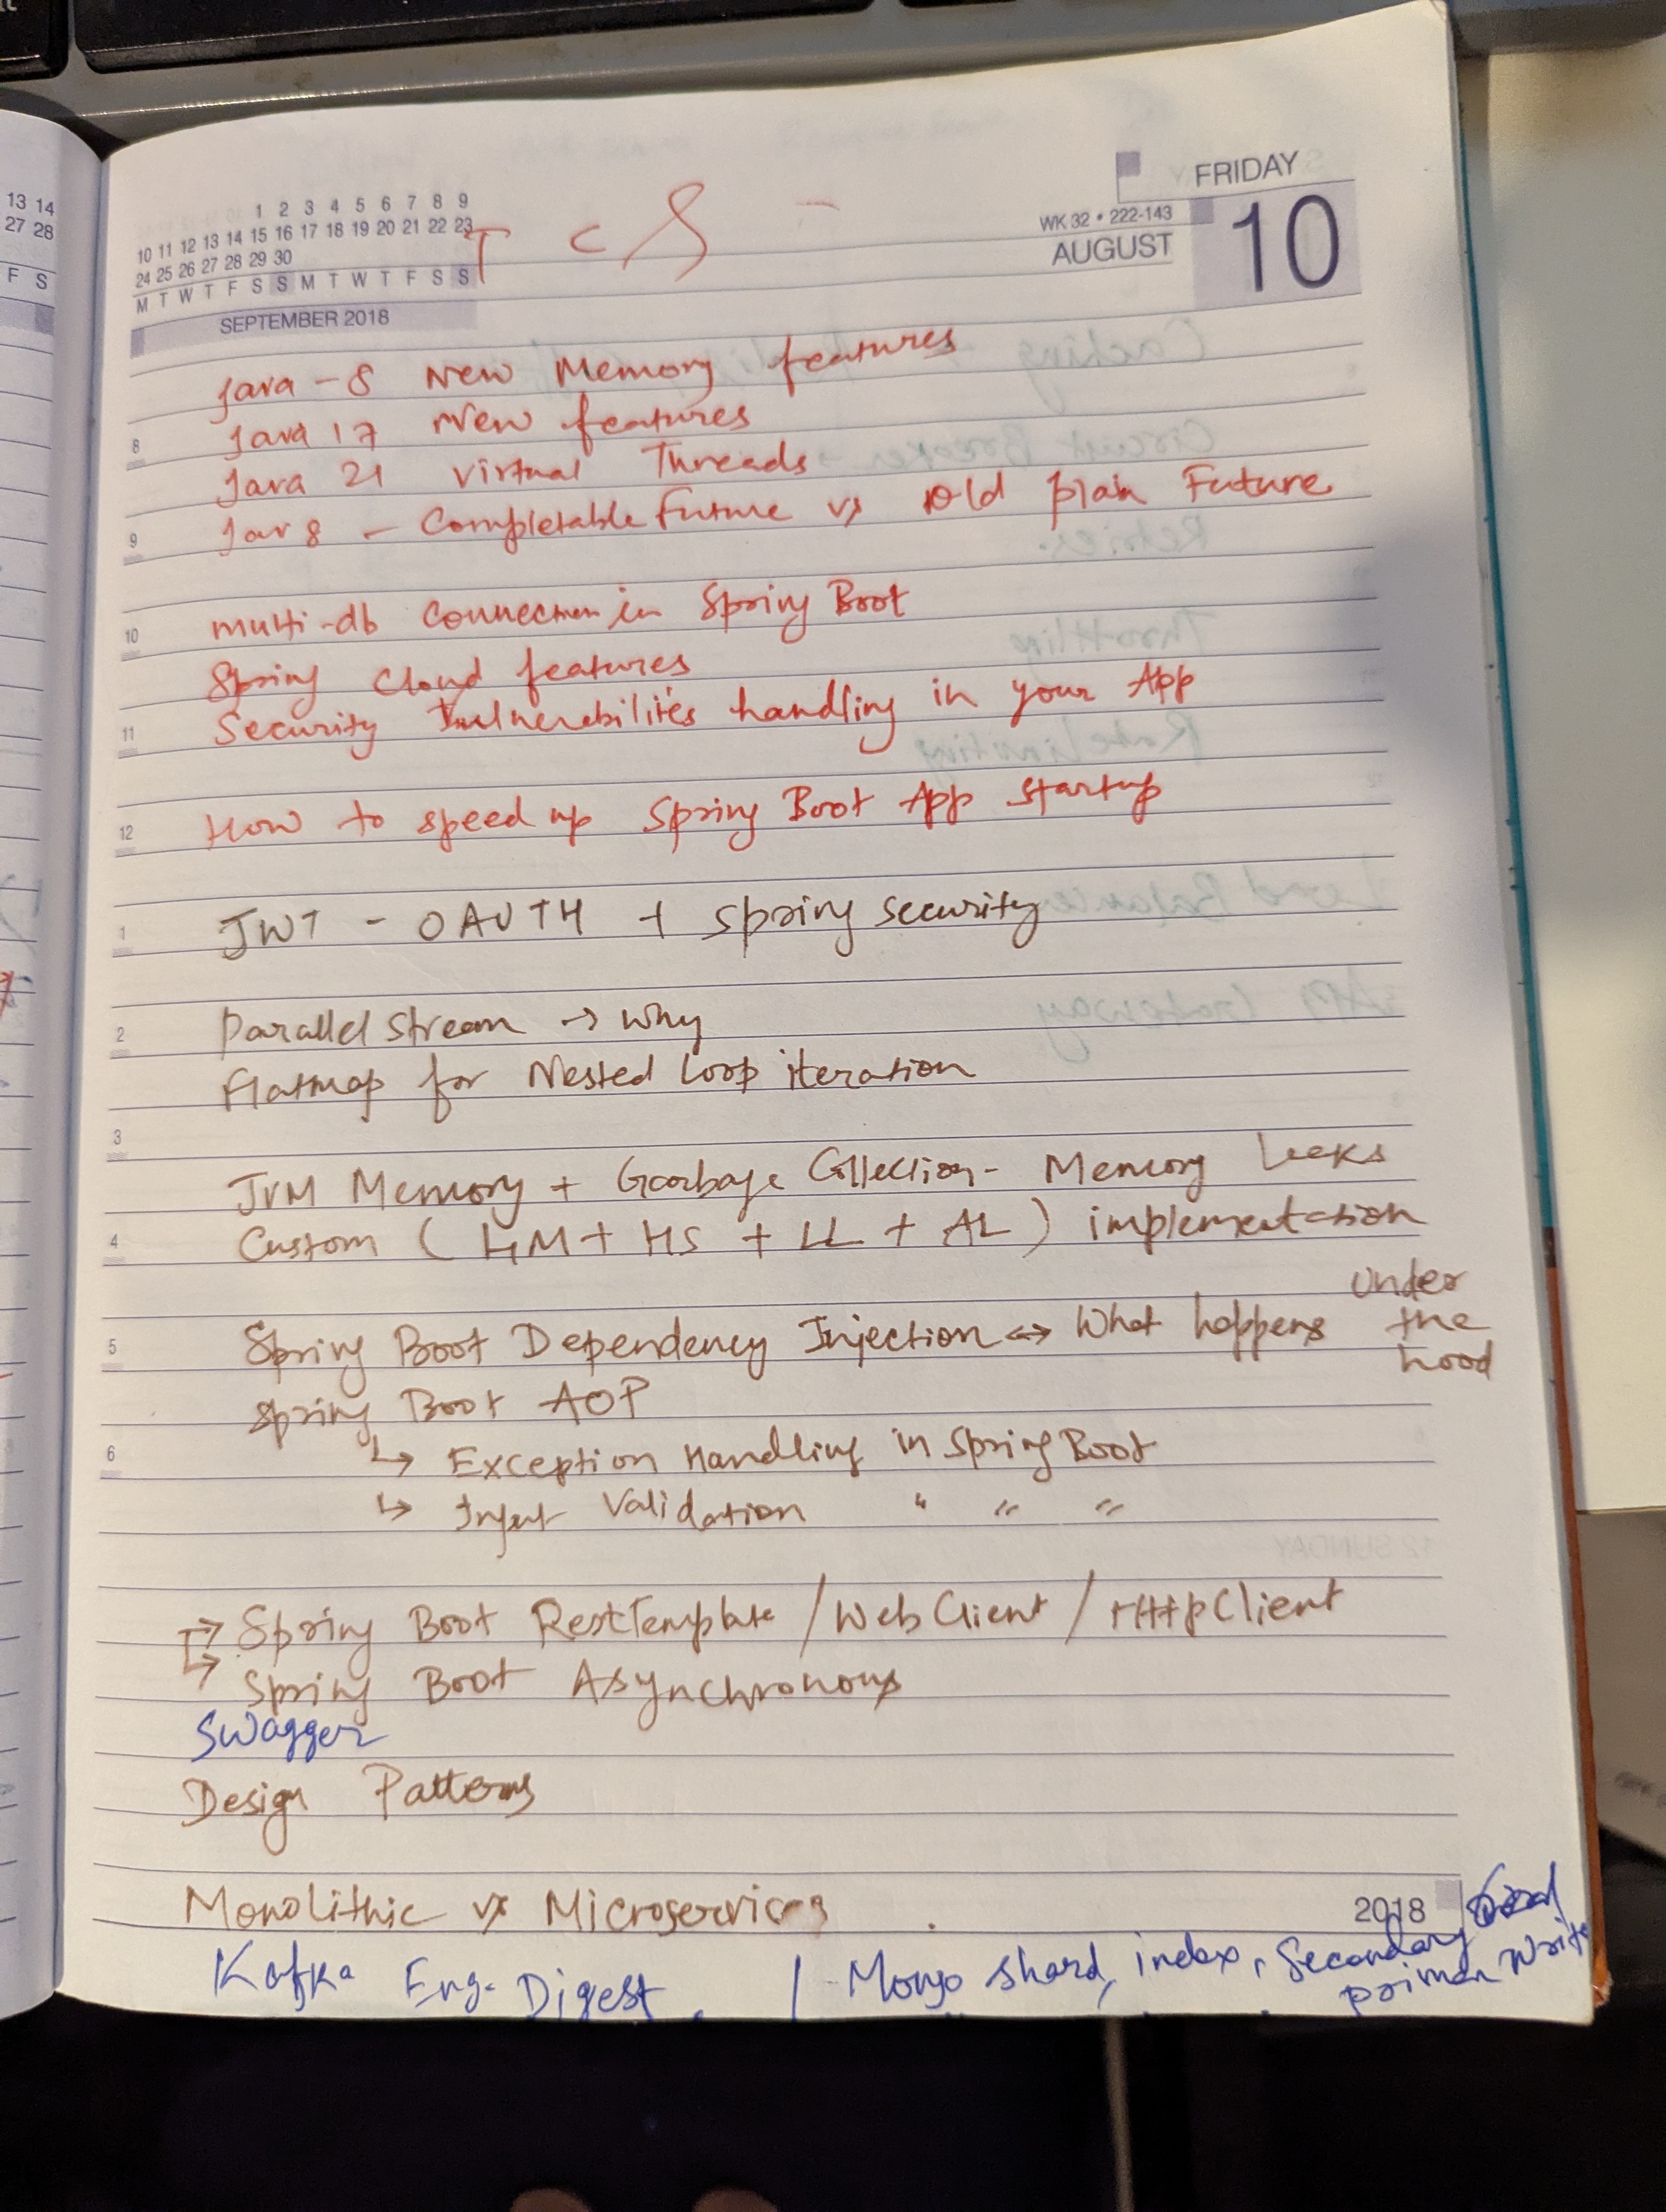 13 14
27 28
F S
1 2 3 4 5 6 7 8 9
10 11 12 13 14 15 16 17 18 19 20 21 22 23
24 25 26 27 28 29 30
M T W T F S S M T W T F S S
SEPTEMBER 2018
T C S -
FRIDAY
WK 32 • 222-143
AUGUST
10
Java - 8 New Memory features
8
Java 17 New features
Java 21 Virtual Threads
9
Jav 8 - Completable Future vs Old plain Future
10
multi-db connection in Spring Boot
Spring Cloud features
11
Security Vulnerabilities handling in your App
12
How to speed up Spring Boot App startup
1
JWT - OAUTH + spring security
2
Parallel Stream → Why
Flatmap for Nested Loop iteration
3
JVM Memory + Garbage Collection - Memory Leeks
4
Custom ( HM + HS + LL + AL ) implementation
5
Spring Boot Dependency Injection ↔ What happens Under the hood
Spring Boot AOP
6
↳ Exception Handling in Spring Boot
↳ Input Validation " " "
→ Spring Boot RestTemplate / WebClient / HttpClient
↳ Spring Boot Asynchronous
Swagger
Design Patterns
Monolithic vs Microservices
2018
Kafka Eng. Digest. / Mongo shard, index, Secondary
write